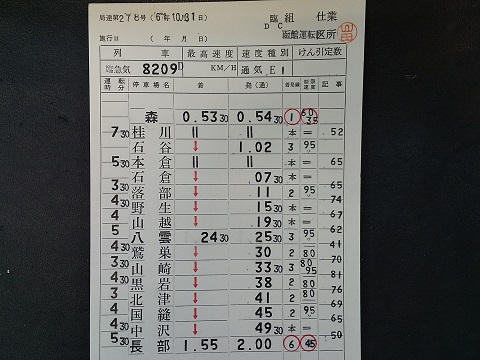 局達第278号('67年10月31日) 臨 組 仕業
D C
施行日 ( 年 月 日) 函館運転区所
列 車 最高速度 速度種別 けん引定数
臨急気 8209D KM/H 通気 E1
運転時分 停車場名 着 発(通) 着発線 制限速度 記事
森 0.53 30 0.54 30 1 60 35
7 30 桂川 〃 〃 本 = 52
石谷 ↓ 1.02 3 95
5 30 本倉 〃 〃 本 = 65
石倉 ↓ 07 30 本 =
3 30 落部 ↓ 11 2 95 65
4 30 野生 ↓ 15 30 本 = 74
4 山越 ↓ 19 30 本 = 67
5 八雲 24 30 25 30 3 95 62
4 30 鷲巣 ↓ 30 2 80 41
3 30 山崎 ↓ 33 30 3 80 95 70
4 30 黒岩 ↓ 38 2 80 81
3 北津 ↓ 41 2 80 76
4 国縫 ↓ 45 2 95 69
4 30 中沢 ↓ 49 30 本 =
5 30 長部 1.55 2.00 6 45 50